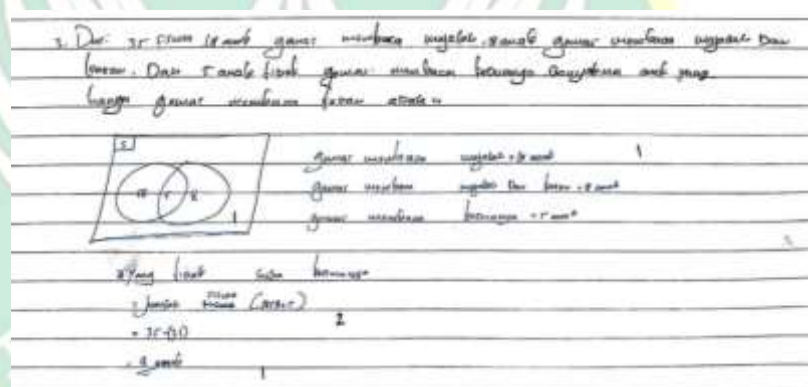 3. Dari 35 siswa 18 anak gemar membaca majalah, 8 anak gemar membaca majalah Dan
koran. Dan 5 anak tidak gemar membaca keduanya banyaknya anak yang
hanya gemar membaca koran adalah
S
18 5 8
gemar membaca majalah = 18 anak
1
gemar membaca majalah Dan koran = 8 anak
gemar membaca keduanya = 5 anak
Yang tidak suka keduanya
= Jumlah siswa
2
= 35-(31)
= 4 anak
1